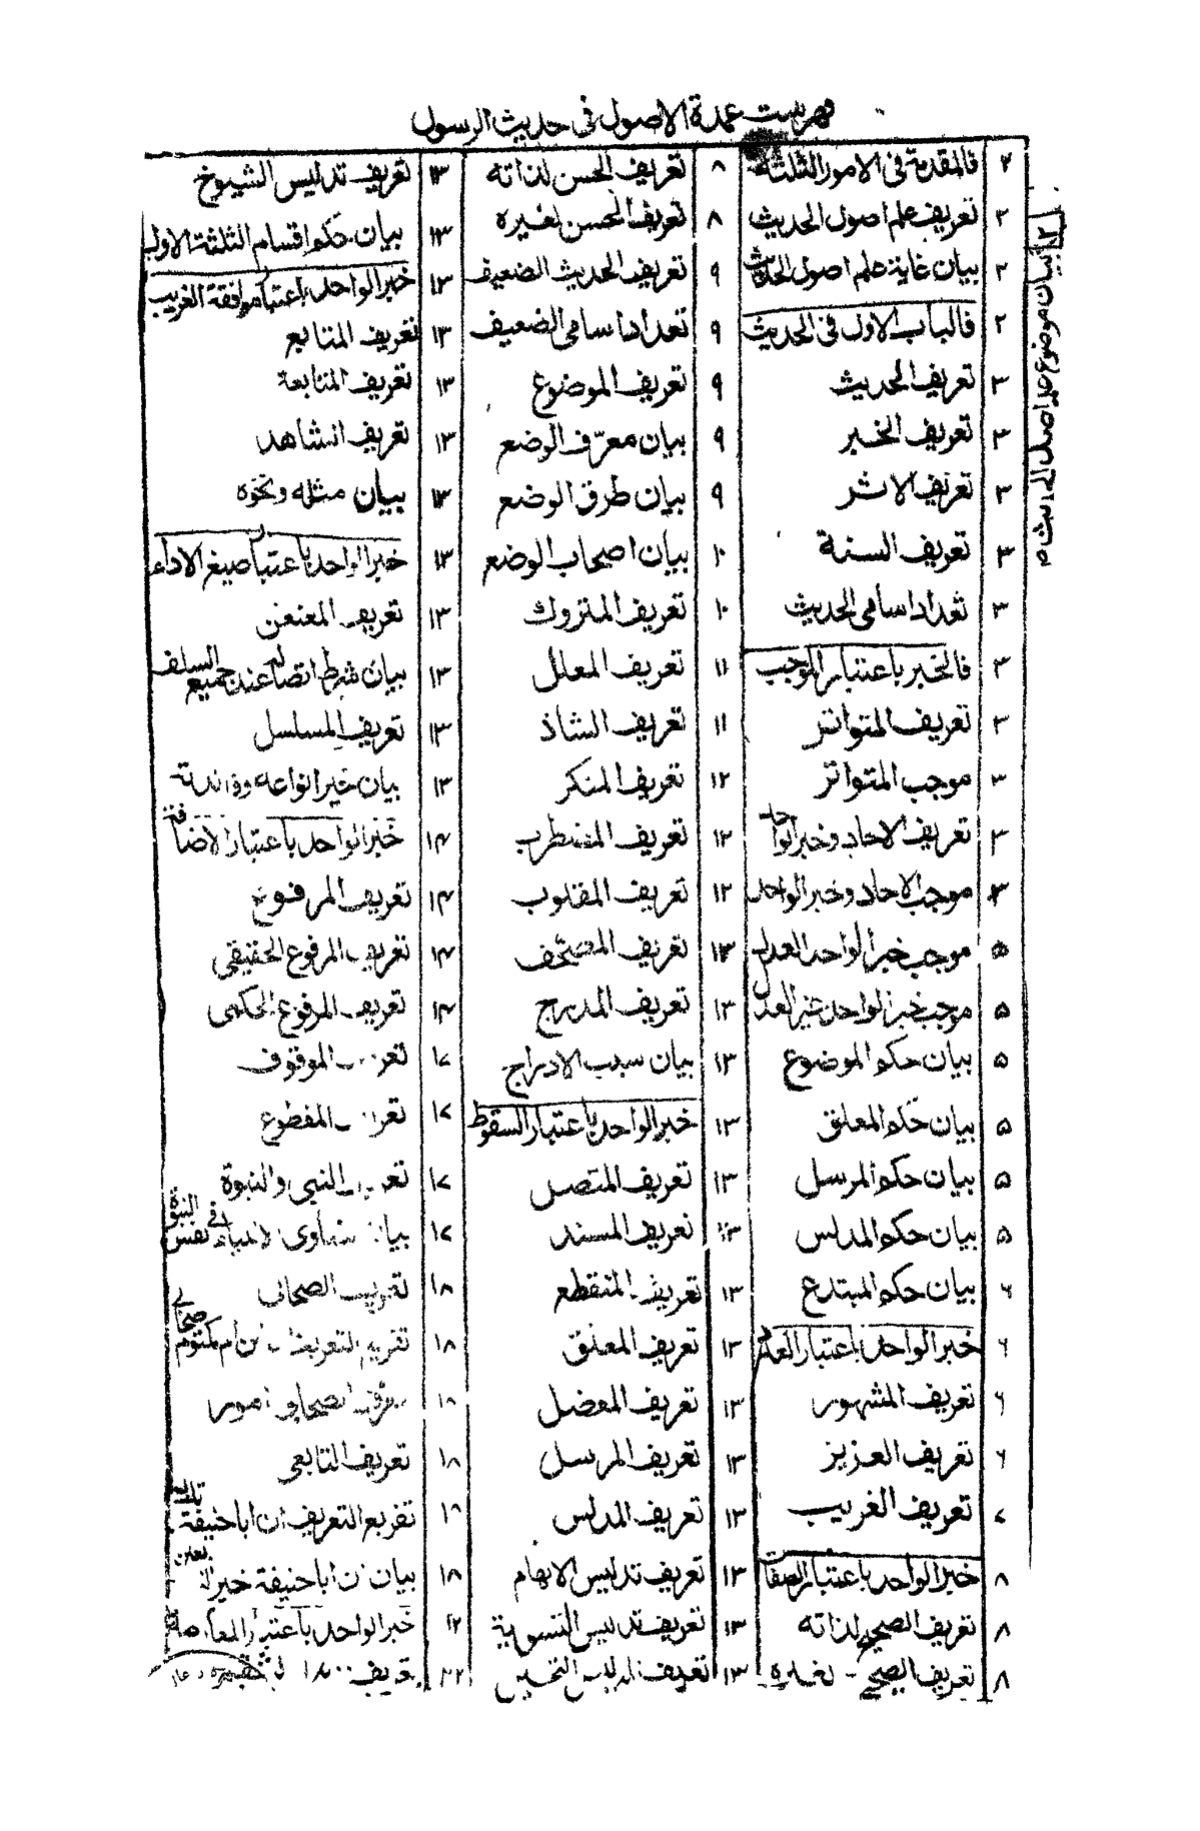 فهرست عمدة الاصول فى حديث الرسول
٢ فالمقدمة فى الامور الثلثة
٢ تعريف علم اصول الحديث
٢ بيان غاية علم اصول الحديث
٢ فالباب الاول فى الحديث
٣ تعريف الحديث
٣ تعريف الخبر
٣ تعريف الاثر
٣ تعريف السنة
٣ تعداد اسامى الحديث
٣ فالخبر باعتبار الموجب
٣ تعريف المتواتر
٣ موجب المتواتر
٣ تعريف الاحاد وخبر الواحد
٣ موجب الاحاد وخبر الواحد
۵ موجب خبر الواحد العدل
۵ موجب خبر الواحد غير العدل
۵ بيان حكم الموضوع
۵ بيان حكم المعلق
۵ بيان حكم المرسل
۵ بيان حكم المدلس
۶ بيان حكم المبتدع
۶ خبر الواحد باعتبار العدد
۶ تعريف المشهور
۶ تعريف العزيز
۷ تعريف الغريب
٨ خبر الواحد باعتبار الصفا
٨ تعريف الصحيح لذاته
٨ تعريف الصحيح لغيره
٢ بيان موضوع علم اصول الحديث
٨ تعريف الحسن لذاته
٨ تعريف الحسن لغيره
٩ تعريف الحديث الضعيف
٩ تعداد اسامى الضعيف
٩ تعريف الموضوع
٩ بيان معرّف الوضع
٩ بيان طرق الوضع
١٠ بيان اصحاب الوضع
١٠ تعريف المتروك
١١ تعريف المعلل
١١ تعريف الشاذ
١٢ تعريف المنكر
١٢ تعريف المضطرب
١٢ تعريف المقلوب
١٣ تعريف المصحف
١٣ تعريف المدرج
١٣ بيان سبب الادراج
١٣ خبر الواحد باعتبار السقوط
١٣ تعريف المتصل
١٣ تعريف المسند
١٣ تعريف المنقطع
١٣ تعريف المعلق
١٣ تعريف المعضل
١٣ تعريف المرسل
١٣ تعريف المدلس
١٣ تعريف تدليس الابهام
١٣ تعريف تدليس التسوية
١٣ تعريف تدليس
١٣ تعريف تدليس الشيوخ
١٣ بيان حكم اقسام الثلثة الاول
١٣ خبر الواحد باعتبار موافقة الغريب
١٣ تعريف المتابع
١٣ تعريف المتابعة
١٣ تعريف الشاهد
١٣ بيان مثله ونحوه
١٣ خبر الواحد باعتبار صيغ الاداء
١٣ تعريف المعنعن
١٣ بيان شرط اتصاله عند جميع السلف
١٣ تعريف المسلسل
١٣ بيان خير انواعه وفائدته
١۴ خبر الواحد باعتبار الاضافة
١۴ تعريف المرفوع
١۴ تعريف المرفوع الحقيقى
١۴ تعريف المرفوع الحكمى
١۷ تعريف الموقوف
١۷ تعريف المقطوع
١۷ تعريف النبى والنبوة
١۷ بيان تساوى الانبياء فى نفس النبوة
١٨ تعريف الصحابى
١٨ تفريع التعريف ابن ام مكتوم صحابى
١٨ الصحابى امور
١٨ تعريف التابعى
١٨ تفريع التعريف ان اباحنيفة تابعى
١٨ بيان ان اباحنيفة خير التابعين
خبر الواحد باعتبار
٢٢ تعريف